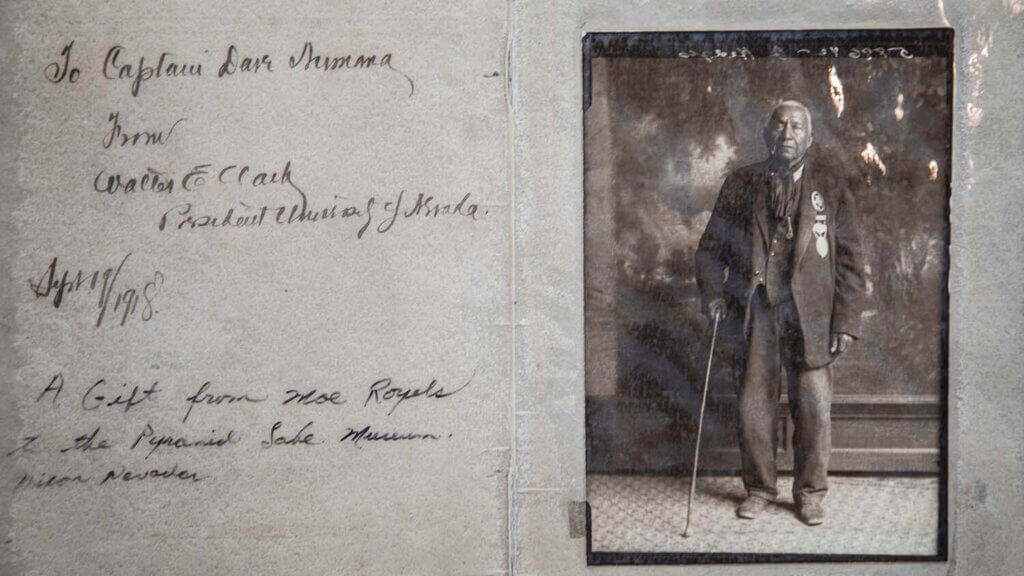 To Captain Dave Numana
From
Walter E Clark
President University of Nevada.
Sept 19/1918.
A Gift from Moe Royels
to the Pyramid Lake Museum.
Nixon Nevada